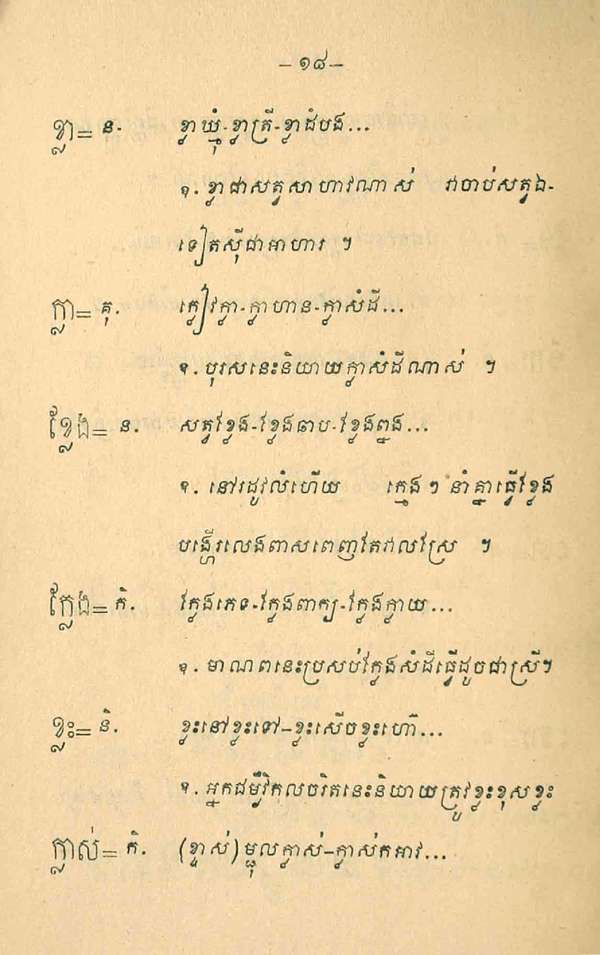 – ១៨ –
ខ្លា = ន. ខ្លាឃ្មុំ-ខ្លាត្រី-ខ្លាដំបង...
ឧ. ខ្លាជាសត្វសាហាវណាស់ វាចាប់សត្វឯ-
ទៀតស៊ីជាអាហារ ។
ក្លា = គុ. ក្លៀវក្លា-ក្លាហាន-ក្លាសំដី...
ឧ. បុរសនេះនិយាយក្លាសំដីណាស់ ។
ខ្លែង = ន. សត្វខ្លែង-ខ្លែងឆាប-ខ្លែងព្នង...
ឧ. នៅរដូវលំហើយ ក្មេងៗ នាំគ្នាធ្វើខ្លែង
បង្ហើរលេងពាសពេញតែវាលស្រែ ។
ក្លែង = កិ. ក្លែងភេទ-ក្លែងពាក្យ-ក្លែងក្លាយ...
ឧ. មាណពនេះប្រសប់ក្លែងសំដីធ្វើដូចជាស្រី។
ខ្លះ = និ. ខ្លះនៅខ្លះទៅ-ខ្លះសើចខ្លះហោ៊...
ឧ. អ្នកជម្ងឺវិកលចរិតនេះនិយាយត្រូវខ្លះខុសខ្លះ
ក្លាស់ = កិ. (ខ្ទាស់) ម្ជុលក្លាស់-ក្លាស់កអាវ...